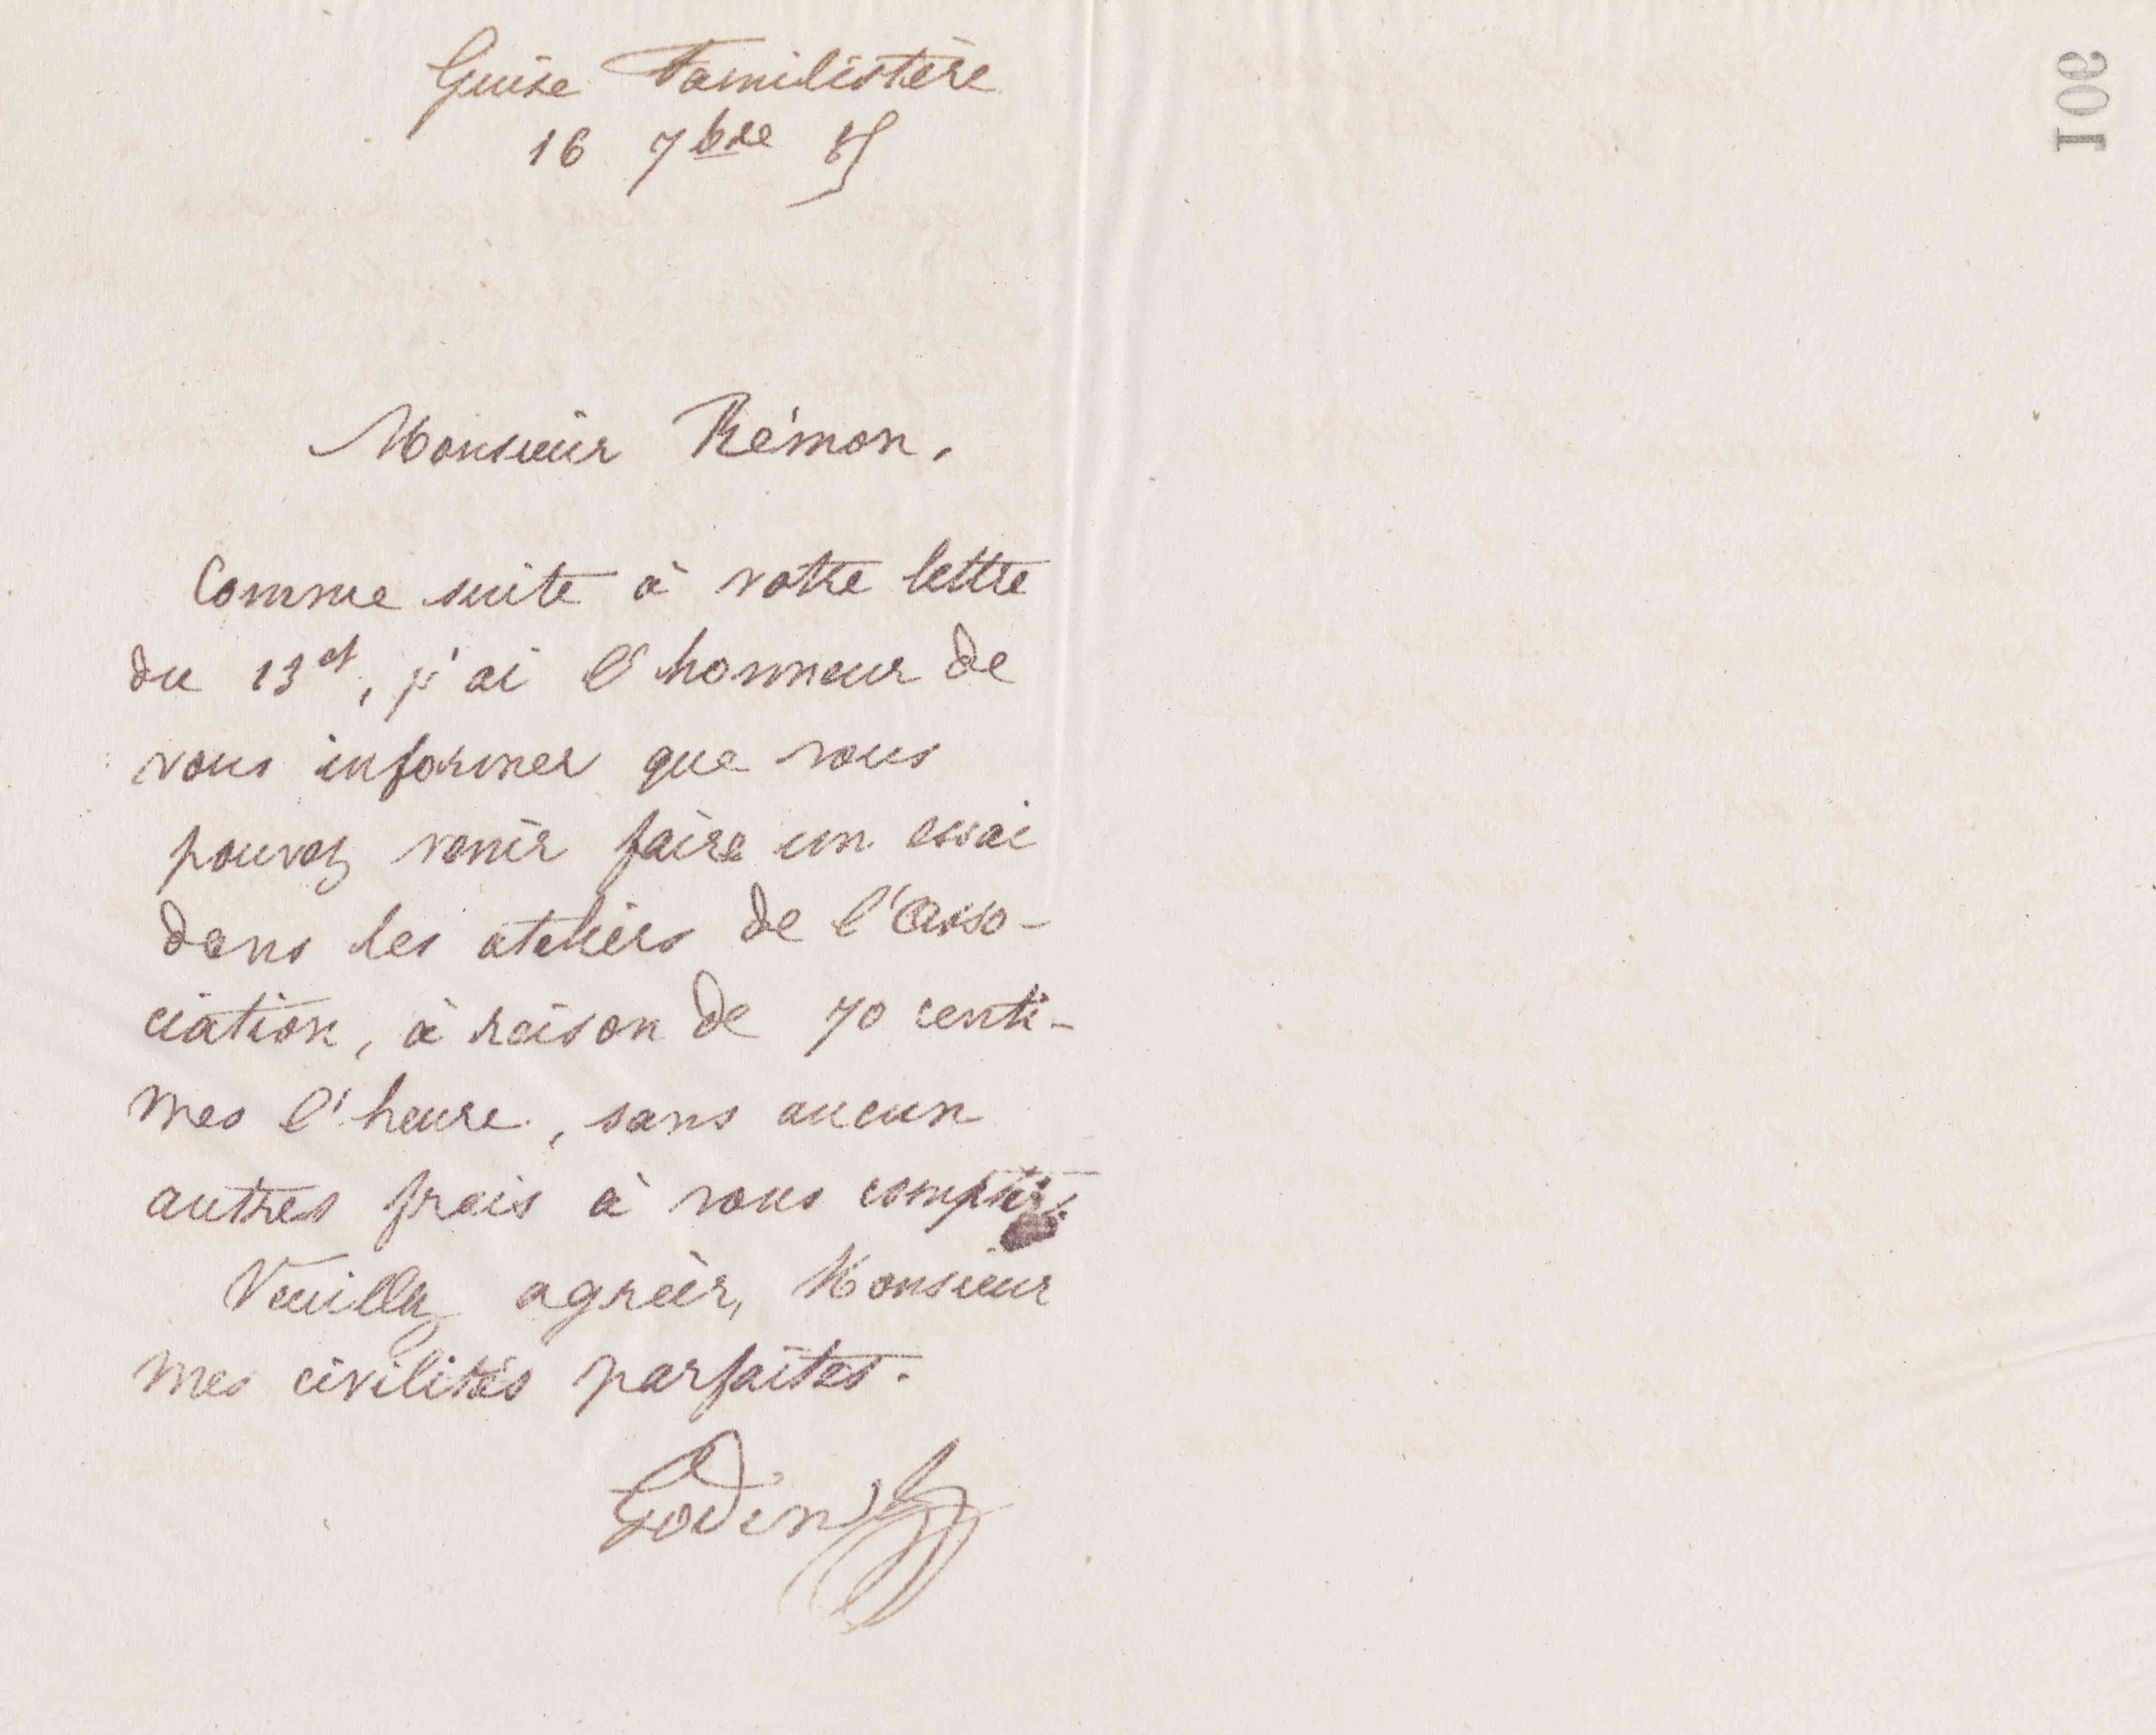 Guise Familistère
16 7bre 85
106
Monsieur Rémon,
Comme suite à votre lettre
du 13 ct, j'ai l'honneur de
vous informer que vous
pouvez venir faire un essai
dans les ateliers de l'Asso-
ciation, à raison de 70 centi-
mes l'heure, sans aucun
autres frais à vous compter.
Veuillez agréer, Monsieur
mes civilités parfaites.
Godin